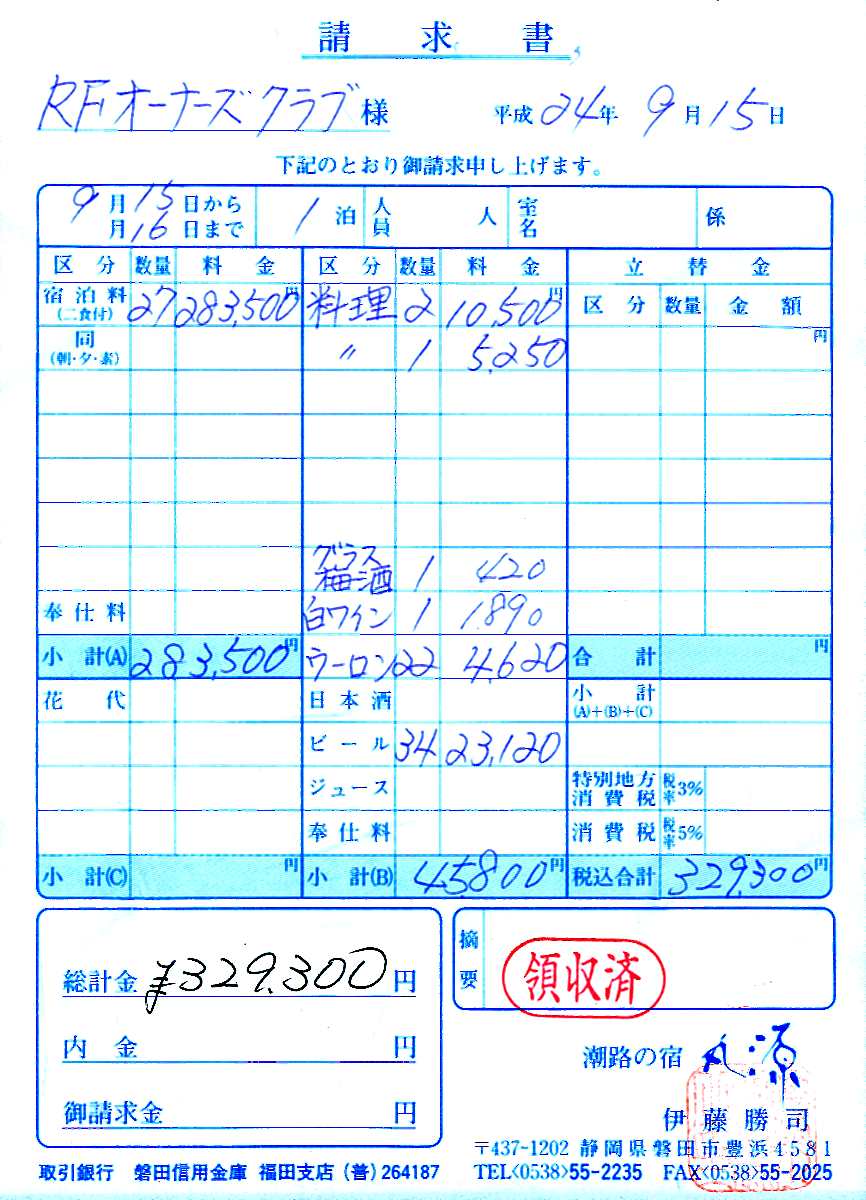 請求書
RFオーナーズクラブ様 平成24年9月15日
下記のとおり御請求申し上げます。
9月15日から 1泊 人員 人 室名 係
月16日まで
区分 数量 料金 区分 数量 料金 立替金
宿泊料(二食付) 27 283,500円 料理 2 10,500円 区分 数量 金額
同(朝・夕・素) 〃 1 5,250 円
グラス梅酒 1 420
奉仕料 白ワイン 1 1,890
小計(A) 283,500円 ウーロン 22 4,620 合計 円
花代 日本酒 小計(A)+(B)+(C)
ビール 34 23,120
ジュース 特別地方消費税 税率3%
奉仕料 消費税 税率5%
小計(C) 円 小計(B) 45,800円 税込合計 329,300円
総計金 ¥329,300円
摘要 領収済
内金 円
潮路の宿 丸源
御請求金 円
伊藤勝司
〒437-1202 静岡県磐田市豊浜4581
取引銀行 磐田信用金庫 福田支店 (普)264187 TEL<0538>55-2235 FAX<0538>55-2025